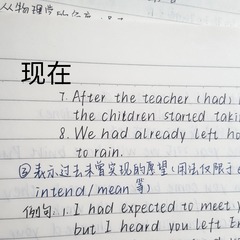 从物理学
现在
7. After the teacher (had)
the children started taki
8. We had already left ho
to rain.
③表示过去未曾实现的愿望(用法仅限于e
intend/mean 等)
例句 1. I had expected to meet y
but I heard you left E